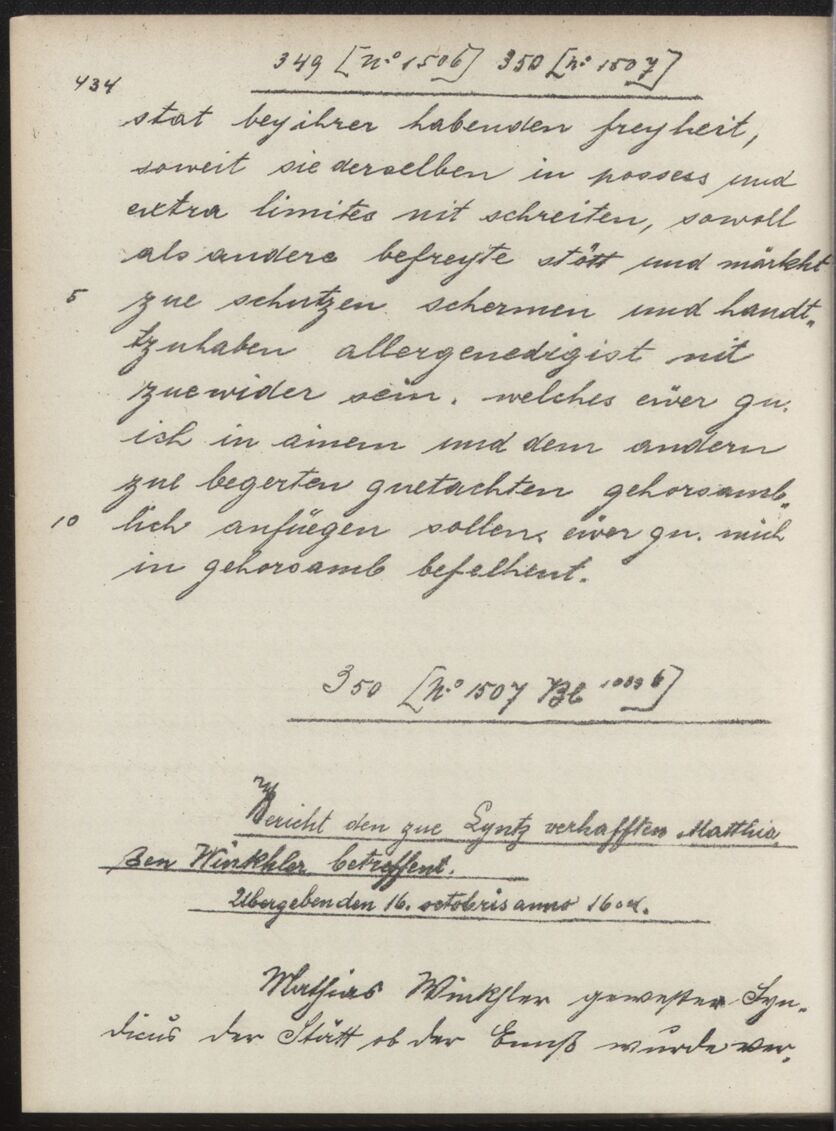 349 [No 1506] 350 [No 1507]
434
stat bey ihrer habenden freyheit,
soweit sie derselben in possess und
extra limites nit schreiten, sowoll
als andere befreyte stött und märkht
5 zue schutzen schermen und handt„
tzuhaben allergenedigist nit
zuewider sein. welches eüer gn.
ich in ainem und dem andern
zue begerten guetachten gehorsamb„
10 lich anfüegen sollen. eüer gn. mich
in gehorsamb befelhent.
350 [No 1507 Bl 1009b]
Bericht den zue Lyntz verhafften Matthia„
sen Winkhler betreffent.
Übergeben den 16. octobris anno 1604.
Mathias Winkhler gewester Syn„
dicus der Stätt ob der Ennß wurde ver„